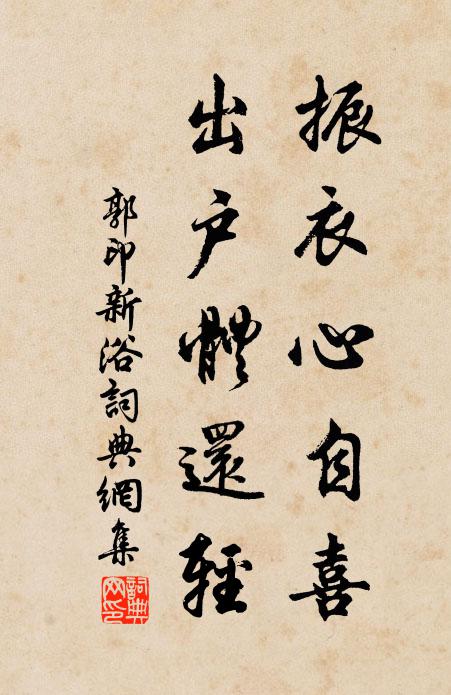 振衣心自喜
出户體還輕
郭印新浴詞典網集
詞典网印